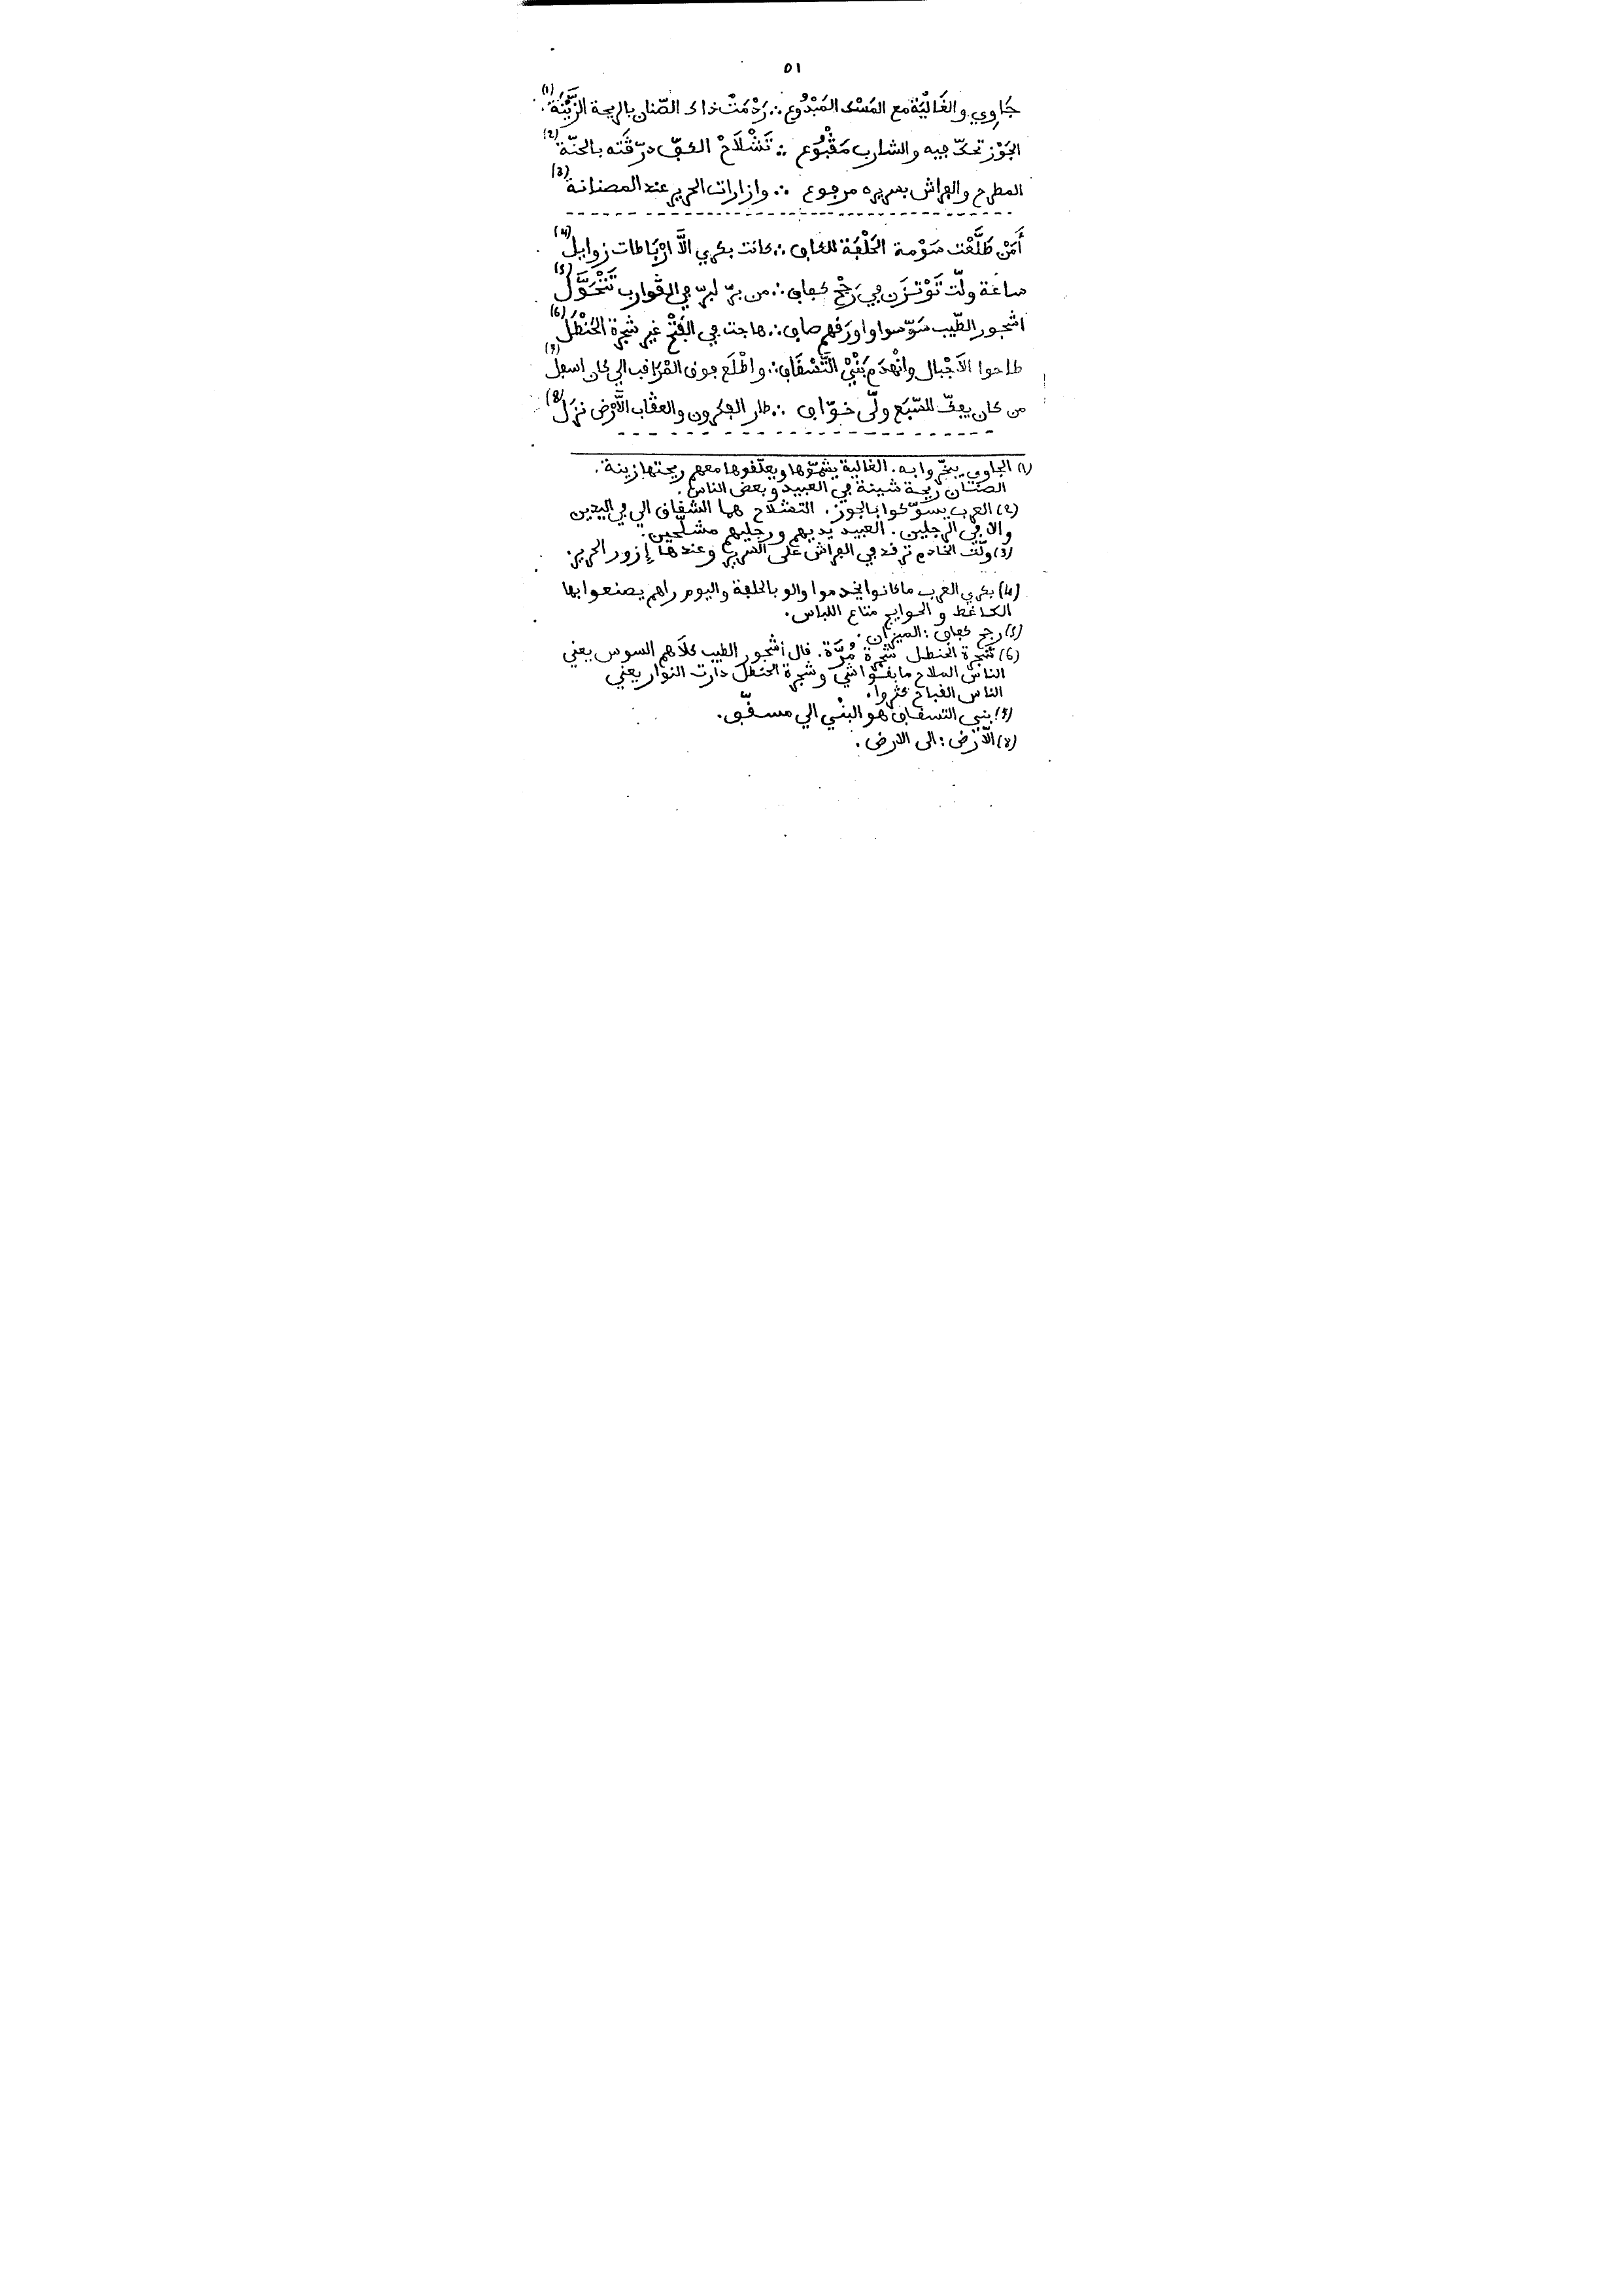 ٥١
جَاوِي والغَالْيَة مع المَسْك المَبْدُوع ∴ رَدْمَتْ ذاك الصّنان بالريحة الزَّيْنَة (1)
الجَوْز تحكّ ڢيه والشارب مَڧْبُوع ∴ تَشْلَاحْ الكڢّ درّڧَته بالحنّة (2)
المطرح والڢراش بسريره مرڢوع ∴ وازارات الحرير عند الصنانة (3)
أَمَنْ طَلَّعْت سَوْمة الحَلْڢَة للكاڢ ∴ كانت بكري الَّا ارْبَاطات زوايل (4)
ساعَة ولّت تَوْتزَن ڢي رَجْح كڢاڢ ∴ من برّ لبرّ ڢي الڧوارب تَتْحَوَّل (5)
اشجور الطّيب سَوّسوا واورَڧهم صاڢ ∴ هاجت ڢي الڢَتْح غير شجرة الحَنْظَل (6)
طاحوا الاَجْبال وانْهدَم بَنْيْ التَّسْڧَاڢ ∴ واطْلَع ڢوڧ المْرَاڧب الي كان اسڢل (7)
من كان يعڢّ للسّبَع ولّى خوّاڢ ∴ طار الڢكرون والعڧاب الَّرْض نزَل (8)
(1) الجاوي يبخّروا به. الغالية يشمّوها ويعلّڧوها معهم ريحتها زينة.
الصنان ريحة شينة ڢي العبيد وبعض الناس.
(2) العرب يسوّكوا بالجوز. التشلاح هما الشڧاڧ الي ڢي اليدين
والا ڢي الرجلين. العبيد يديهم ورجليهم مشلّحين.
(3) ولّت الخادم ترڧد ڢي الڢراش على السرير وعندها إزور الحرير.
(4) بكري العرب ما كانوا يخدموا والو بالحلڢة واليوم راهم يصنعوا بها
الكاغط والحوايج متاع اللباس.
(5) رجح كڢاڢ: الميزان.
(6) شجرة الحنظل شجرة مُرّة. ڧال أشجور الطيب كلاَهم السوس يعني
الناس الملاح ما بڧوا شي وشجرة الحنظل دارت النوار يعني
الناس الڧباح كثروا.
(7) بني التسڧاڢ هو البنْي الي مسڧّڢ.
(8) الَّرْض: الى الارض.